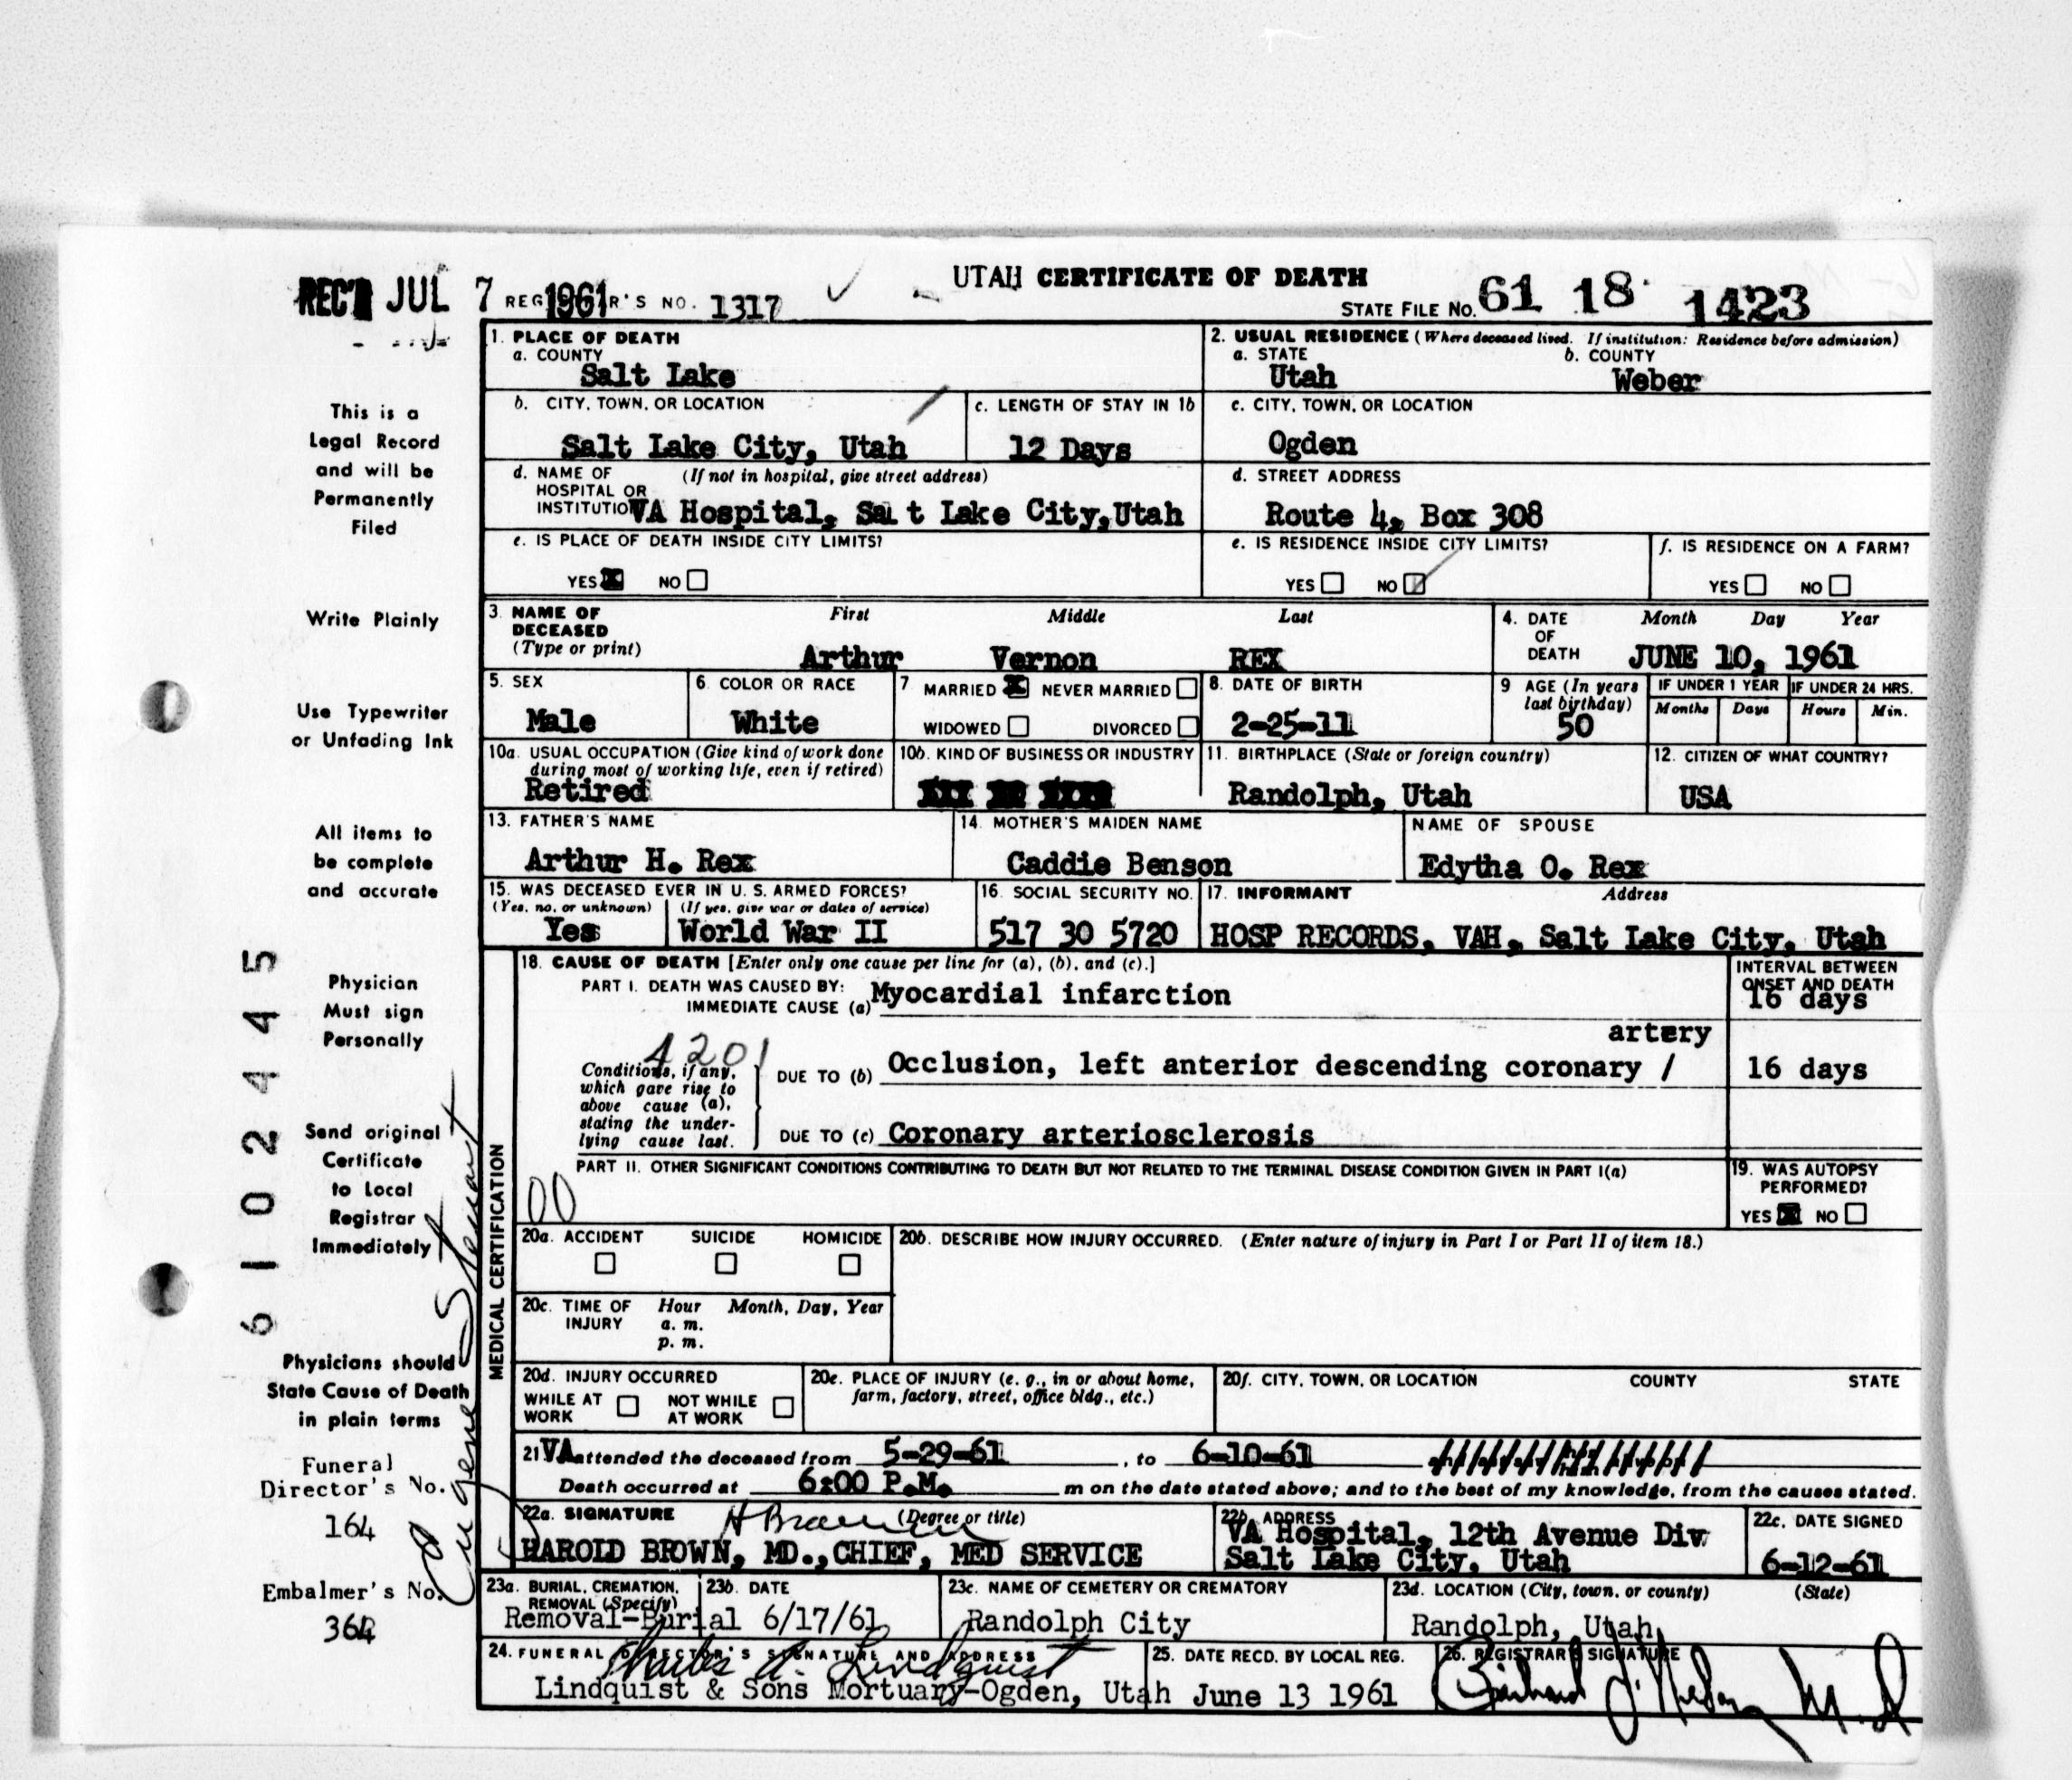 UTAH CERTIFICATE OF DEATH
REC'D JUL 7 1961 REGISTRAR'S NO. 1317
STATE FILE NO. 61 18 1423
This is a
Legal Record
and will be
Permanently
Filed
Write Plainly
Use Typewriter
or Unfading Ink
All items to
be complete
and accurate
Physician
Must sign
Personally
Send original
Certificate
to Local
Registrar
Immediately
Physicians should
State Cause of Death
in plain terms
Funeral
Director's No.
164
Embalmer's No.
364
6102445
Eugene Stewart
1. PLACE OF DEATH
a. COUNTY
Salt Lake
2. USUAL RESIDENCE (Where deceased lived. If institution: Residence before admission)
a. STATE b. COUNTY
Utah Weber
b. CITY, TOWN, OR LOCATION
Salt Lake City, Utah
c. LENGTH OF STAY IN 1b
12 Days
c. CITY, TOWN, OR LOCATION
Ogden
d. NAME OF (If not in hospital, give street address)
HOSPITAL OR
INSTITUTION VA Hospital, Salt Lake City, Utah
d. STREET ADDRESS
Route 4, Box 308
e. IS PLACE OF DEATH INSIDE CITY LIMITS?
YES NO
e. IS RESIDENCE INSIDE CITY LIMITS?
YES NO
f. IS RESIDENCE ON A FARM?
YES NO
3. NAME OF DECEASED
(Type or print)
First Middle Last
Arthur Vernon REX
4. DATE OF DEATH
Month Day Year
JUNE 10, 1961
5. SEX
Male
6. COLOR OR RACE
White
7 MARRIED NEVER MARRIED
WIDOWED DIVORCED
8. DATE OF BIRTH
2-25-11
9 AGE (In years last birthday)
50
IF UNDER 1 YEAR IF UNDER 24 HRS.
Months Days Hours Min.
10a. USUAL OCCUPATION (Give kind of work done during most of working life, even if retired)
Retired
10b. KIND OF BUSINESS OR INDUSTRY
11. BIRTHPLACE (State or foreign country)
Randolph, Utah
12. CITIZEN OF WHAT COUNTRY?
USA
13. FATHER'S NAME
Arthur H. Rex
14. MOTHER'S MAIDEN NAME
Caddie Benson
NAME OF SPOUSE
Edytha O. Rex
15. WAS DECEASED EVER IN U. S. ARMED FORCES?
(Yes, no, or unknown) (If yes, give war or dates of service)
Yes World War II
16. SOCIAL SECURITY NO.
517 30 5720
17. INFORMANT Address
HOSP RECORDS, VAH, Salt Lake City, Utah
MEDICAL CERTIFICATION
18. CAUSE OF DEATH [Enter only one cause per line for (a), (b), and (c).]
INTERVAL BETWEEN
ONSET AND DEATH
PART I. DEATH WAS CAUSED BY:
IMMEDIATE CAUSE (a) Myocardial infarction 16 days
4201
Conditions, if any,
which gave rise to
above cause (a),
stating the under-
lying cause last.
artery
DUE TO (b) Occlusion, left anterior descending coronary / 16 days
DUE TO (c) Coronary arteriosclerosis
PART II. OTHER SIGNIFICANT CONDITIONS CONTRIBUTING TO DEATH BUT NOT RELATED TO THE TERMINAL DISEASE CONDITION GIVEN IN PART I(a)
00
19. WAS AUTOPSY
PERFORMED?
YES NO
20a. ACCIDENT SUICIDE HOMICIDE
20b. DESCRIBE HOW INJURY OCCURRED. (Enter nature of injury in Part I or Part II of item 18.)
20c. TIME OF INJURY Hour Month, Day, Year
a. m.
p. m.
20d. INJURY OCCURRED
WHILE AT WORK NOT WHILE AT WORK
20e. PLACE OF INJURY (e. g., in or about home,
farm, factory, street, office bldg., etc.)
20f. CITY, TOWN, OR LOCATION COUNTY STATE
21 VA attended the deceased from 5-29-61, to 6-10-61
Death occurred at 6:00 P.M. m on the date stated above; and to the best of my knowledge, from the causes stated.
22a. SIGNATURE (Degree or title)
H Brown
HAROLD BROWN, MD., CHIEF, MED SERVICE
22b. ADDRESS
VA Hospital, 12th Avenue Div
Salt Lake City, Utah
22c. DATE SIGNED
6-12-61
23a. BURIAL, CREMATION,
REMOVAL (Specify)
Removal-Burial
23b. DATE
6/17/61
23c. NAME OF CEMETERY OR CREMATORY
Randolph City
23d. LOCATION (City, town, or county) (State)
Randolph, Utah
24. FUNERAL DIRECTOR'S SIGNATURE AND ADDRESS
Charles A. Lindquist
Lindquist & Sons Mortuary-Ogden, Utah
25. DATE RECD. BY LOCAL REG.
June 13 1961
26. REGISTRAR'S SIGNATURE